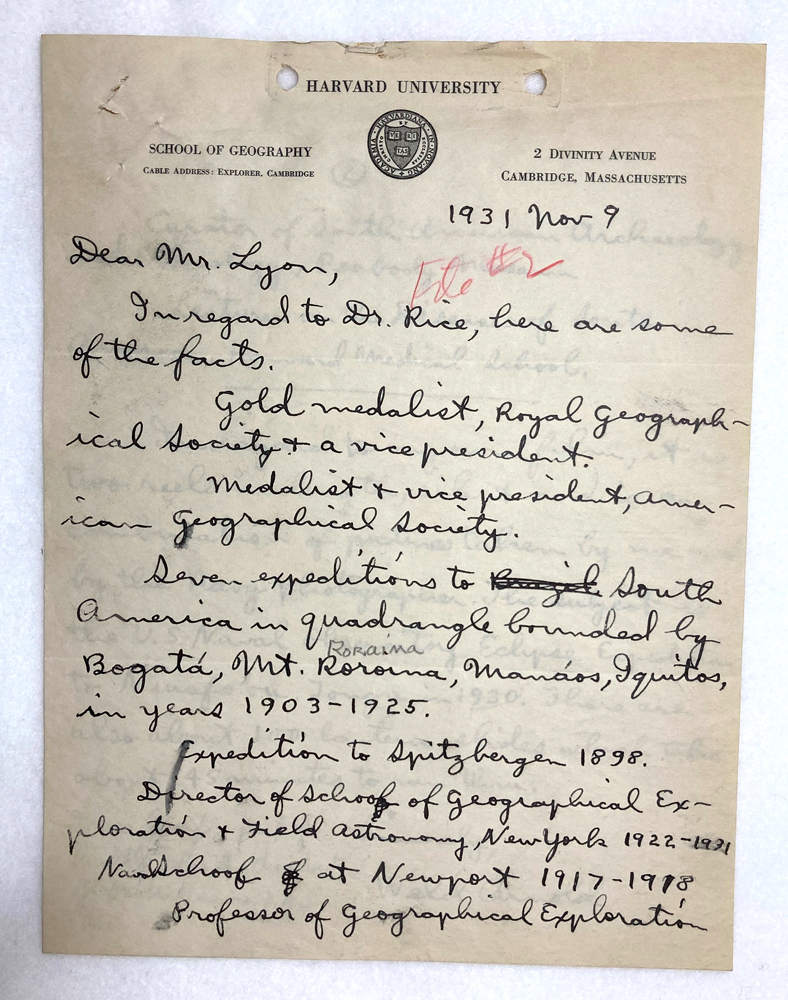 HARVARD UNIVERSITY
SCHOOL OF GEOGRAPHY
CABLE ADDRESS: EXPLORER, CAMBRIDGE
VE RI TAS
2 DIVINITY AVENUE
CAMBRIDGE, MASSACHUSETTS
1931 Nov 9
Dear Mr. Lyon,
File #2
In regard to Dr. Rice, here are some
of the facts.
Gold medalist, Royal Geograph-
ical Society & a vice president.
Medalist & vice president, Amer-
ican Geographical Society.
Seven expeditions to Brazil South
America in quadrangle bounded by
Roraima
Bogatá, Mt. Roroima, Manáos, Iquitos,
in years 1903-1925.
Expedition to Spitzbergen 1898.
Director of School of Geographical Ex-
ploration & Field Astronomy, New York 1922-1931
Naval School of at Newport 1917-1918
Professor of Geographical Exploration